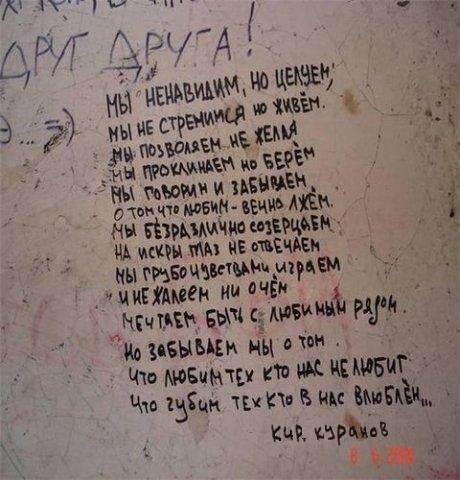 ДРУГ ДРУГА!
МЫ НЕНАВИДИМ, НО ЦЕЛУЕМ,
МЫ НЕ СТРЕМИМСЯ НО ЖИВЁМ.
МЫ ПОЗВОЛЯЕМ НЕ ЖЕЛАЯ
МЫ ПРОКЛИНАЕМ НО БЕРЁМ
МЫ ГОВОРИМ И ЗАБЫВАЕМ
О ТОМ ЧТО ЛЮБИМ - ВЕЧНО ЛЖЁМ.
МЫ БЕЗРАЗЛИЧНО СОЗЕРЦАЕМ
НА ИСКРЫ ГЛАЗ НЕ ОТВЕЧАЕМ
МЫ ГРУБО ЧУВСТВАМИ ИГРАЕМ
И НЕ ЖАЛЕЕМ НИ О ЧЁМ
МЕЧТАЕМ БЫТЬ С ЛЮБИМЫМ РЯДОМ
НО ЗАБЫВАЕМ МЫ О ТОМ
ЧТО ЛЮБИМ ТЕХ КТО НАС НЕ ЛЮБИТ
ЧТО ГУБИМ ТЕХ КТО В НАС ВЛЮБЛЁН...
КИР. КУРАНОВ